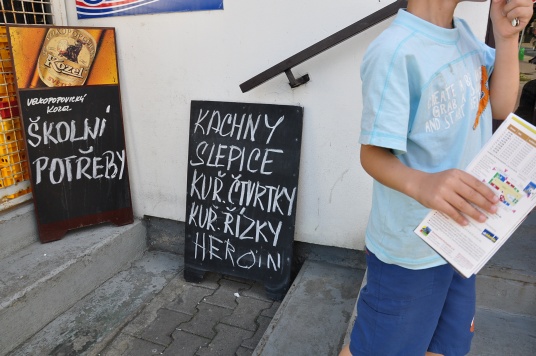 Kozel
VELKOPOPOVICKÝ
KOZEL
ŠKOLNÍ
POTŘEBY
KACHNY
SLEPICE
KUŘ. ČTVRTKY
KUŘ. ŘÍZKY
HEROIN